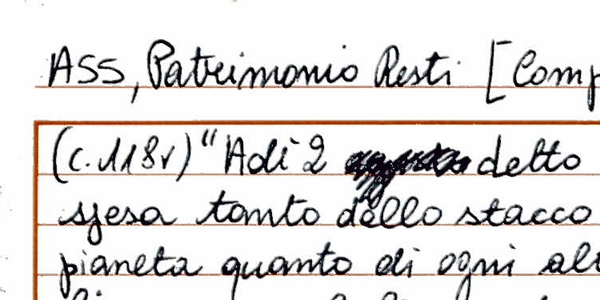 ASS, Patrimonio Resti [Comp
(c.118v) "Adì 2 detto
spesa tanto dello stacco
pianeta quanto di ogni alt